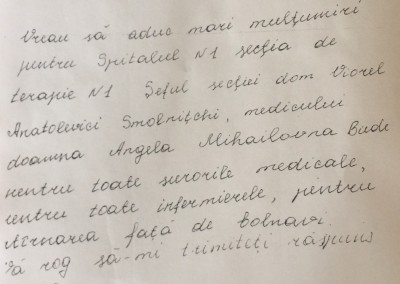 Vreau să aduc mari mulțumiri
pentru Spitalul N1 secția de
terapie N1 Șeful secției dom Viorel
Anatolievici Smolnițchi, medicului
doamna Angela Mihailovna Bude
pentru toate surorile medicale,
entru toate infermierele, pentru
față de bolnavi.
Vă rog să-mi trimiteți răspuns